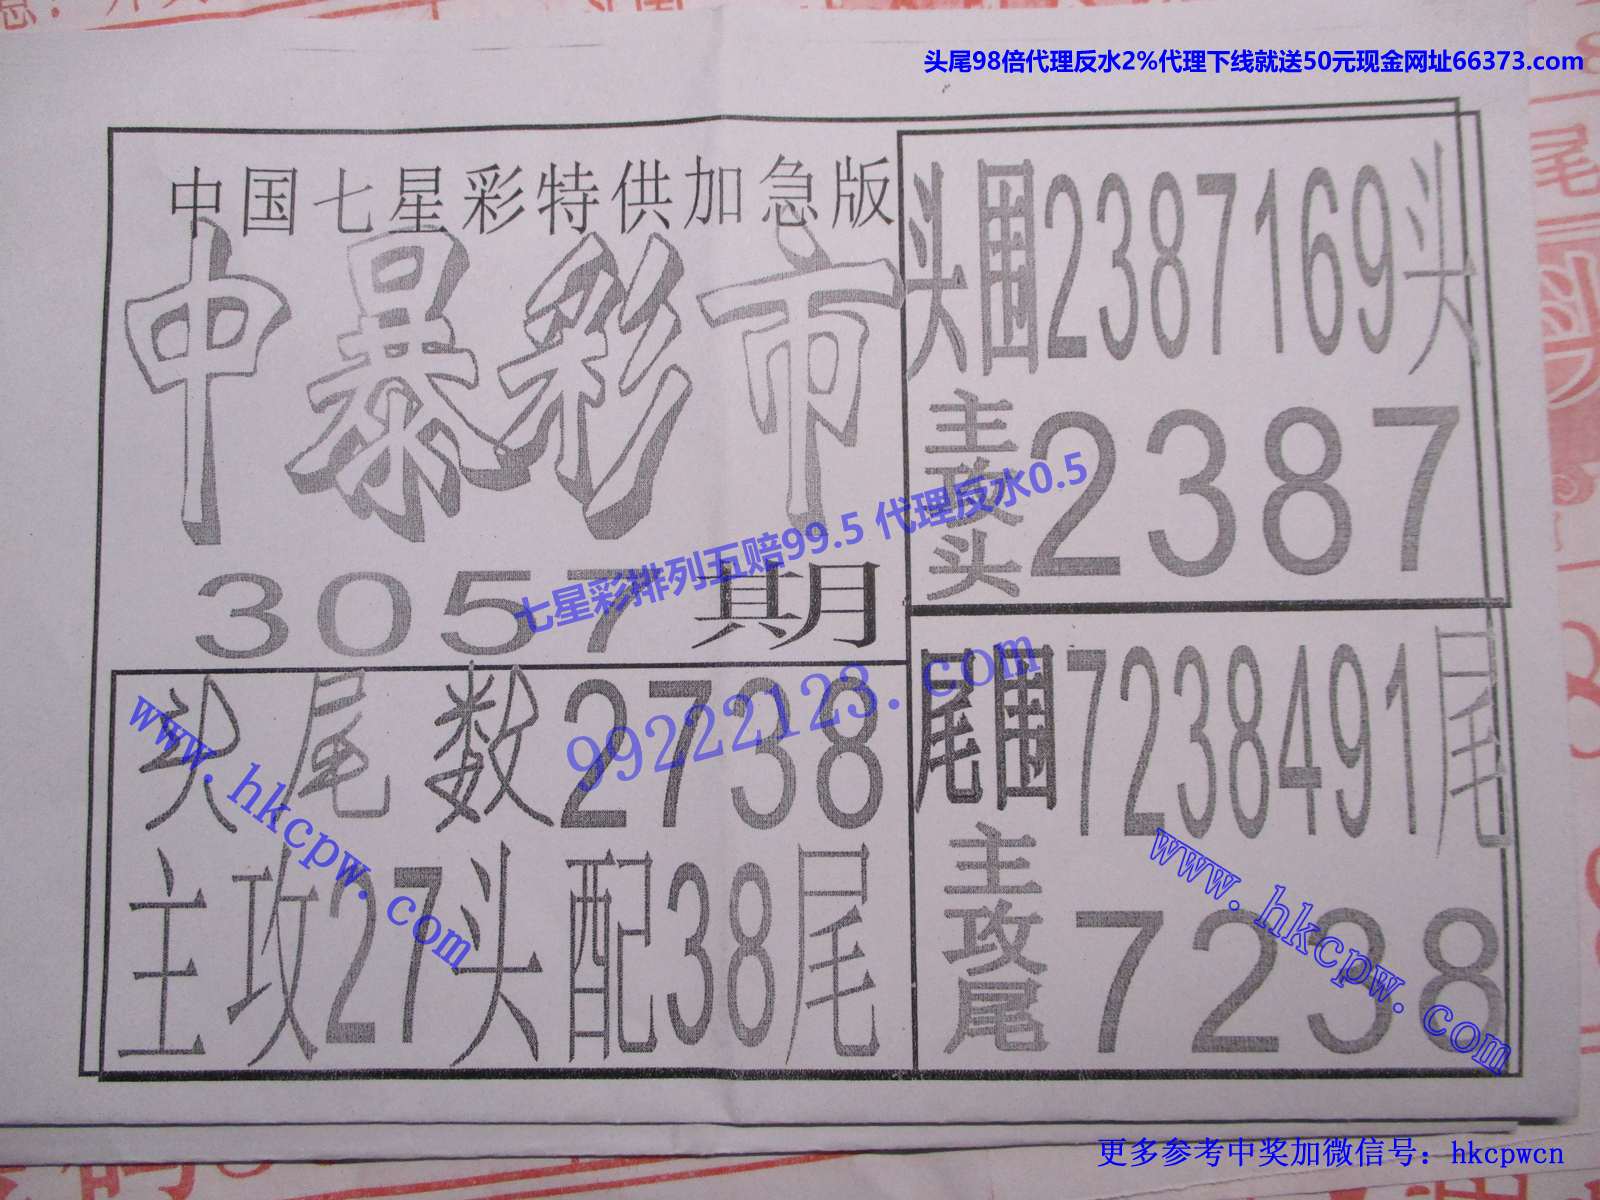 头尾98倍代理反水2%代理下线就送50元现金网址66373.com
中国七星彩特供加急版
中暴彩市
3057期
七星彩排列五赔99.5 代理反水0.5
99222123.com
头尾数2738
主攻27头配38尾
www.hkcpw.com
头围2387169头
主攻头2387
尾围7238491尾
主攻尾7238
www.hkcpw.com
更多参考中奖加微信号：hkcpwcn